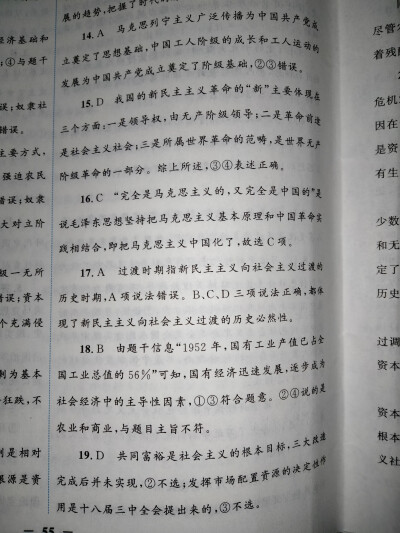 济基础和
;④与题干
误;奴隶社
错误。
主要方式,
强迫农民
错误;奴隶
大对立阶
级一无所
错误;资本
个充满侵
制为基本
狂跌,不
则是相对
根源是资
展的趋势,把握了时代的
14.A 马克思列宁主义广泛传播为中国共产党成
立奠定了思想基础,中国工人阶级的成长和工人运动的
发展为中国共产党成立奠定了阶级基础,②③错误。
15.D 我国的新民主主义革命的“新”主要体现在
三个方面:一是领导权,由无产阶级领导;二是革命前途
是社会主义社会;三是所属世界革命的范畴,是世界无产
阶级革命的一部分。综上所述,③④表述正确。
16.C “完全是马克思主义的,又完全是中国的”是
说毛泽东思想坚持把马克思主义基本原理和中国革命实
践相结合,即把马克思主义中国化了,故选C项。
17.A 过渡时期指新民主主义向社会主义过渡的
历史时期,A项说法错误。B、C、D三项说法正确,都体
现了新民主主义向社会主义过渡的历史必然性。
18.B 由题干信息“1952年,国有工业产值已占全
国工业总值的56%”可知,国有经济迅速发展,逐步成为
社会经济中的主导性因素,①③符合题意。②④说的是
农业和商业,与题目主旨不符。
19.D 共同富裕是社会主义的根本目标,三大改造
完成后并未实现,②不选;发挥市场配置资源的决定性作
用是十八届三中全会提出来的,③不选。
55
尽管
着残
危机
因在
是资
有生
少数
和无
定了
历史
过调
资本
资本
根本
义社